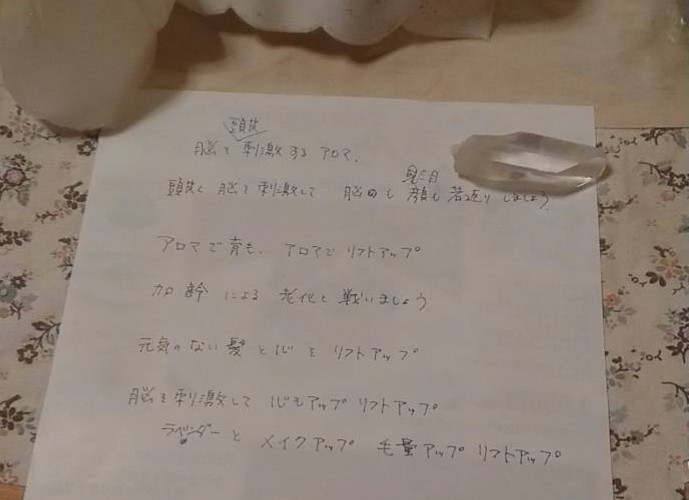 頭皮
脳を刺激するアロマ、
見た目
頭皮と脳を刺激して 脳内も顔も若返りしましょう
アロマで育毛、アロマでリフトアップ
加齢による老化と戦いましょう
元気のない髪と心をリフトアップ
脳を刺激して 心もアップ リフトアップ
ラベンダーと メイクアップ 毛量アップ リフトアップ